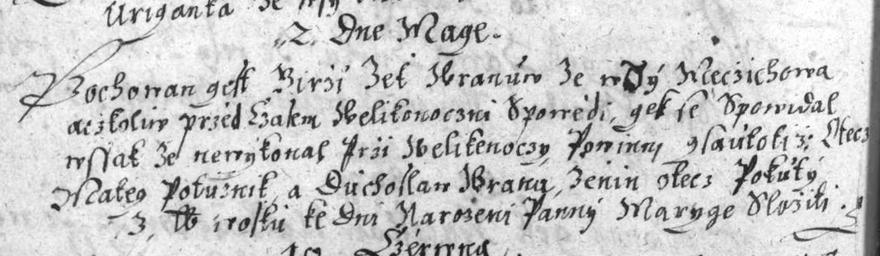 Uriganka ze wsy
2. Dne Mage.
Pochowan gest Girzi Zet Wranuw ze wsy Meczichowa
aczkoliw przed Czasem Welikonoczni Spowedi, gek se Spowidal
wssak ze newykonal przi Welikenoczy Powinny glau toti: Otecz
Mateg Potuznik a Duchoslaw Wrany, Zenin otecz Pokuty
3. lb wosku ke dni Narozeni Panny Maryge Slozili.
Czerwna